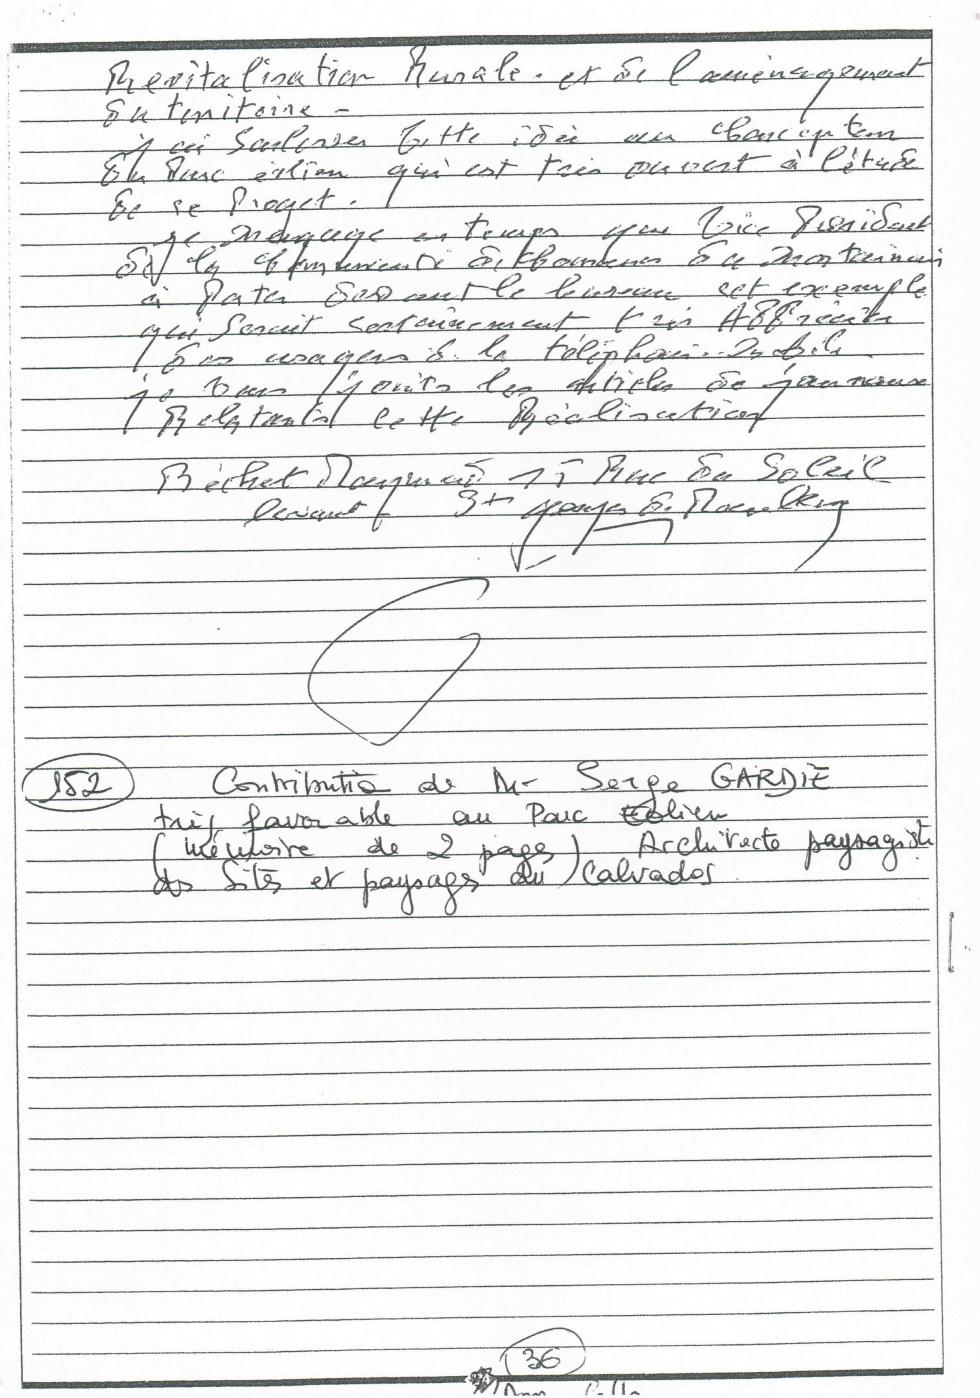 Revitalisation Rurale. et de l'aménagement
du territoire -
j'ai soulever cette idée au concepteur
du Parc éolien qui est très ouvert à l'étude
de se Projet.
je m'engage en temps que Vice Président
de la communauté de communes du Mortainais
à Porter devant le bureau cet exemple
qui serait certainement très Apprécier
des usagers de la téléphonie Mobile.
je vous joints les articles de journaux
Relatants cette Réalisation
Béchet Raymond 15 Rue du Soleil
levant St de
152 Contributio de Mr Serge GARDIE
très favorable au Parc Eolien
(mémoire de 2 pages) Architecte paysagiste
des Sites et paysages du Calvados
36